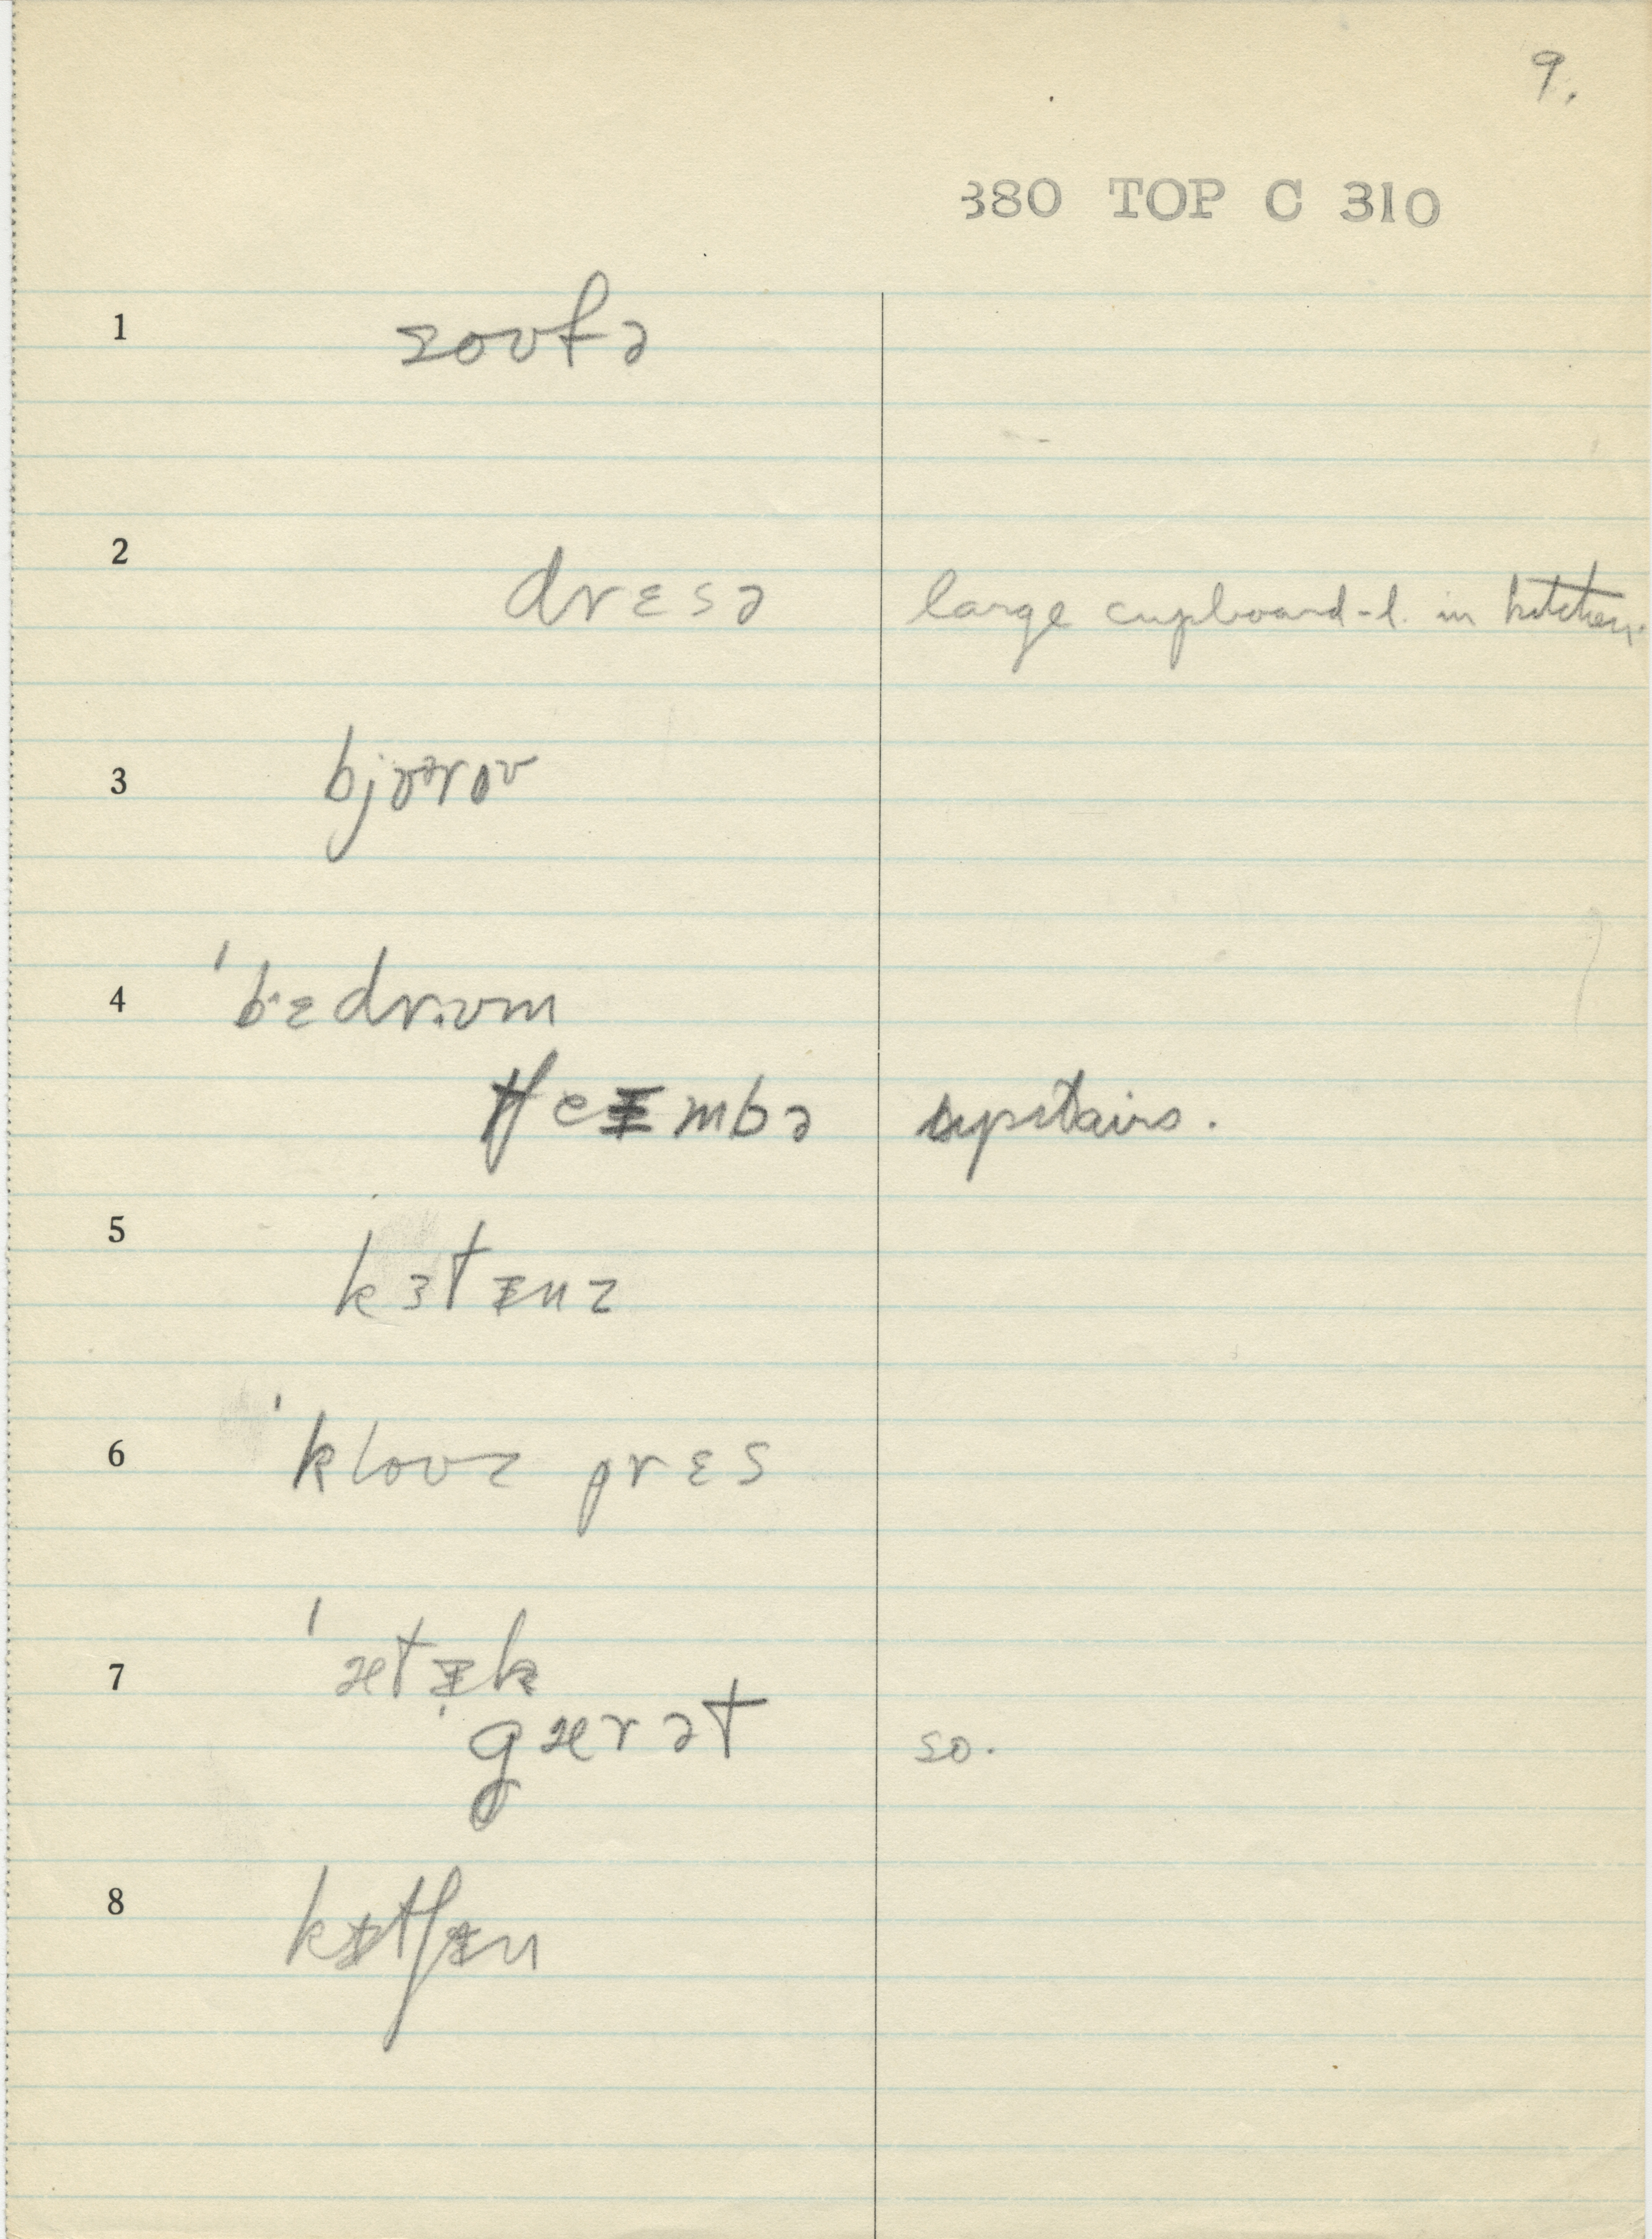 9.
380 TOP C 310
1 soʊfə
2 drɛsə large cupboard-l. in kitchen.
3 bjɤᵊroᶷ
4 ˈbˑɛdrˑʊm
tʃeɪmbə upstairs.
5 kɜtɪnz
6 ˈkloʊz prɛs
7 ˈætɪk
ˈgærət so.
8 kɪtʃɪn